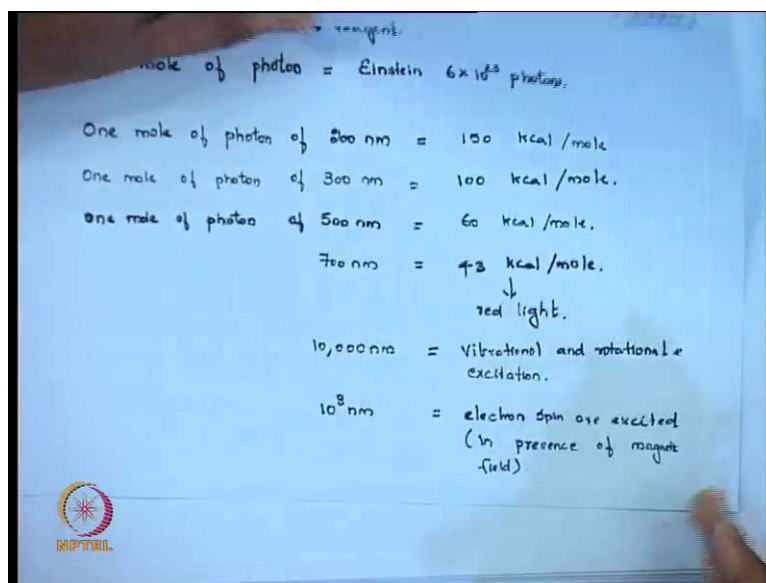 reagent.
mole of photon = Einstein 6×10²³ photons.
One mole of photon of 200 nm = 150 kcal/mole
One mole of photon of 300 nm = 100 kcal/mole.
One mole of photon of 500 nm = 60 kcal/mole.
700 nm = 43 kcal/mole.
↓
red light.
10,000 nm = Vibrational and rotational
excitation.
10⁸ nm = electron spin are excited
(In presence of magnetic
field)
NPTEL